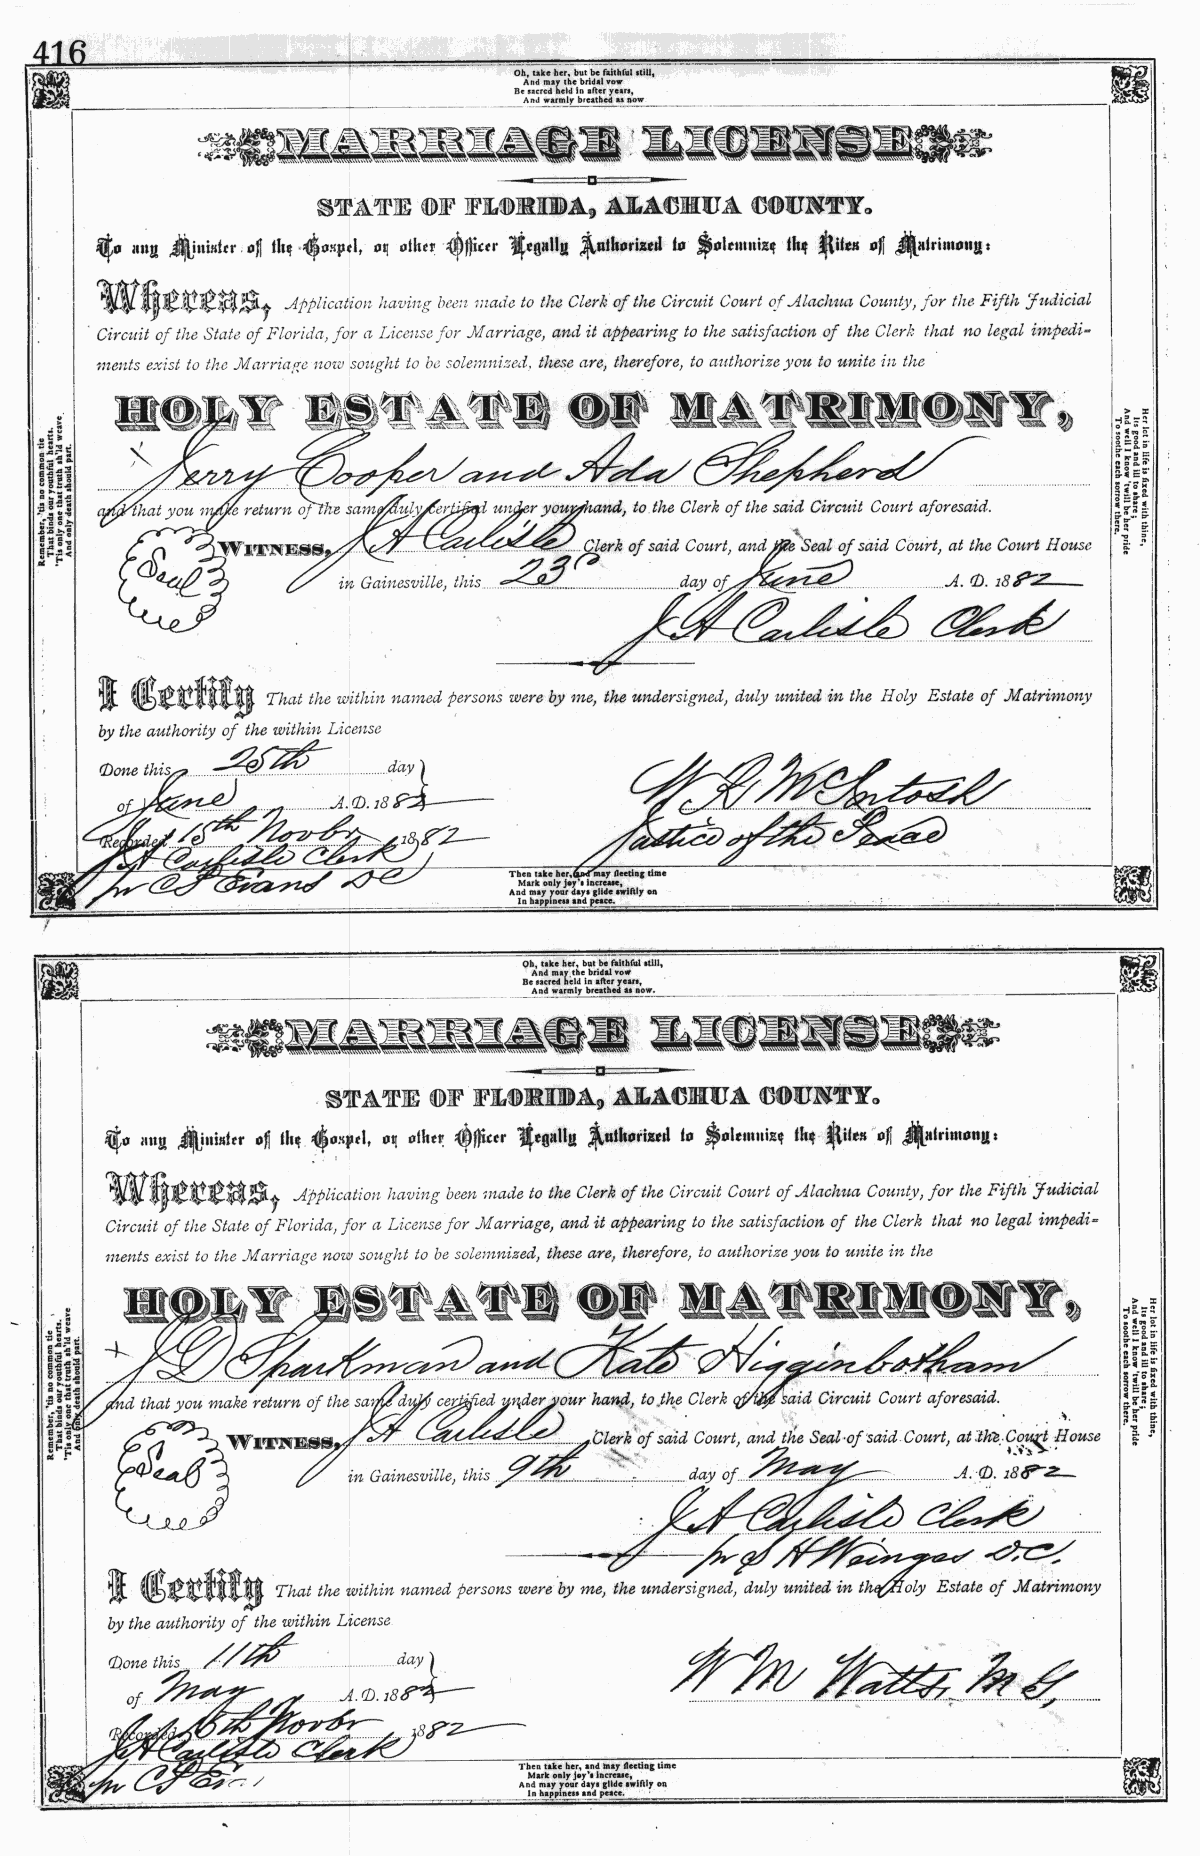 416
Oh, take her, but be faithful still,
And may the bridal vow
Be sacred held in after years,
And warmly breathed as now
MARRIAGE LICENSE
STATE OF FLORIDA, ALACHUA COUNTY.
To any Minister of the Gospel, or other Officer Legally Authorized to Solemnize the Rites of Matrimony:
Whereas, Application having been made to the Clerk of the Circuit Court of Alachua County, for the Fifth Judicial
Circuit of the State of Florida, for a License for Marriage, and it appearing to the satisfaction of the Clerk that no legal impedi-
ments exist to the Marriage now sought to be solemnized, these are, therefore, to authorize you to unite in the
HOLY ESTATE OF MATRIMONY,
Jerry Cooper and Ada Shepherd
and that you make return of the same duly certified under your hand, to the Clerk of the said Circuit Court aforesaid.
Seal
WITNESS, J A Carlisle Clerk of said Court, and the Seal of said Court, at the Court House
in Gainesville, this 23d day of June A. D. 1882
J A Carlisle Clerk
I Certify That the within named persons were by me, the undersigned, duly united in the Holy Estate of Matrimony
by the authority of the within License
Done this 25th day
of June A. D. 1882
W R McIntosh
Justice of the Peace
Recorded 15th Novbr 1882
J A Carlisle Clerk
pr C S Evans DC
Remember, 'tis no common tie
That binds our youthful hearts.
'Tis only one that truth sh'ld weave
And only death should part.
Her lot in life is fixed with thine,
Its good and ill to share;
And well I know 'twill be her pride
To soothe each sorrow there.
Then take her, and may fleeting time
Mark only joy's increase,
And may your days glide swiftly on
In happiness and peace.
Oh, take her, but be faithful still,
And may the bridal vow
Be sacred held in after years,
And warmly breathed as now.
MARRIAGE LICENSE
STATE OF FLORIDA, ALACHUA COUNTY.
To any Minister of the Gospel, or other Officer Legally Authorized to Solemnize the Rites of Matrimony:
Whereas, Application having been made to the Clerk of the Circuit Court of Alachua County, for the Fifth Judicial
Circuit of the State of Florida, for a License for Marriage, and it appearing to the satisfaction of the Clerk that no legal impedi-
ments exist to the Marriage now sought to be solemnized, these are, therefore, to authorize you to unite in the
HOLY ESTATE OF MATRIMONY,
J D Sparkman and Kate Higginbotham
and that you make return of the same duly certified under your hand, to the Clerk of the said Circuit Court aforesaid.
Seal
WITNESS, J A Carlisle Clerk of said Court, and the Seal of said Court, at the Court House
in Gainesville, this 9th day of May A. D. 1882
J A Carlisle Clerk
pr S H Wienges D.C.
I Certify That the within named persons were by me, the undersigned, duly united in the Holy Estate of Matrimony
by the authority of the within License
Done this 11th day
of May A. D. 1882
W M Watts, M G,
Recorded 15th Novbr 1882
J A Carlisle Clerk
pr C S
Remember, 'tis no common tie
That binds our youthful hearts.
'Tis only one that truth sh'ld weave
And only death should part.
Her lot in life is fixed with thine,
Its good and ill to share;
And well I know 'twill be her pride
To soothe each sorrow there.
Then take her, and may fleeting time
Mark only joy's increase,
And may your days glide swiftly on
In happiness and peace.